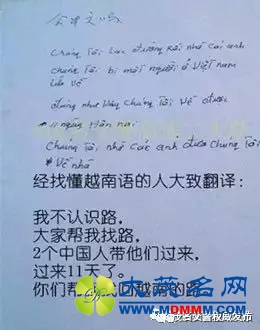 会中文吗
Chúng Tôi Lạc đường Rồi nhờ Các anh
Chúng Tôi bị một người ở Việt nam
Lừa về
đúng như vậy Chúng Tôi Về được
11 ngày Hôm nai
Chúng Tôi nhờ Các anh đưa Chúng Tôi
Về nhà
经找懂越南语的人大致翻译：
我不认识路，
大家帮我找路，
2个中国人带他们过来，
过来11天了。
你们帮
回越南的路
大藏名网
www.MDMMM.com